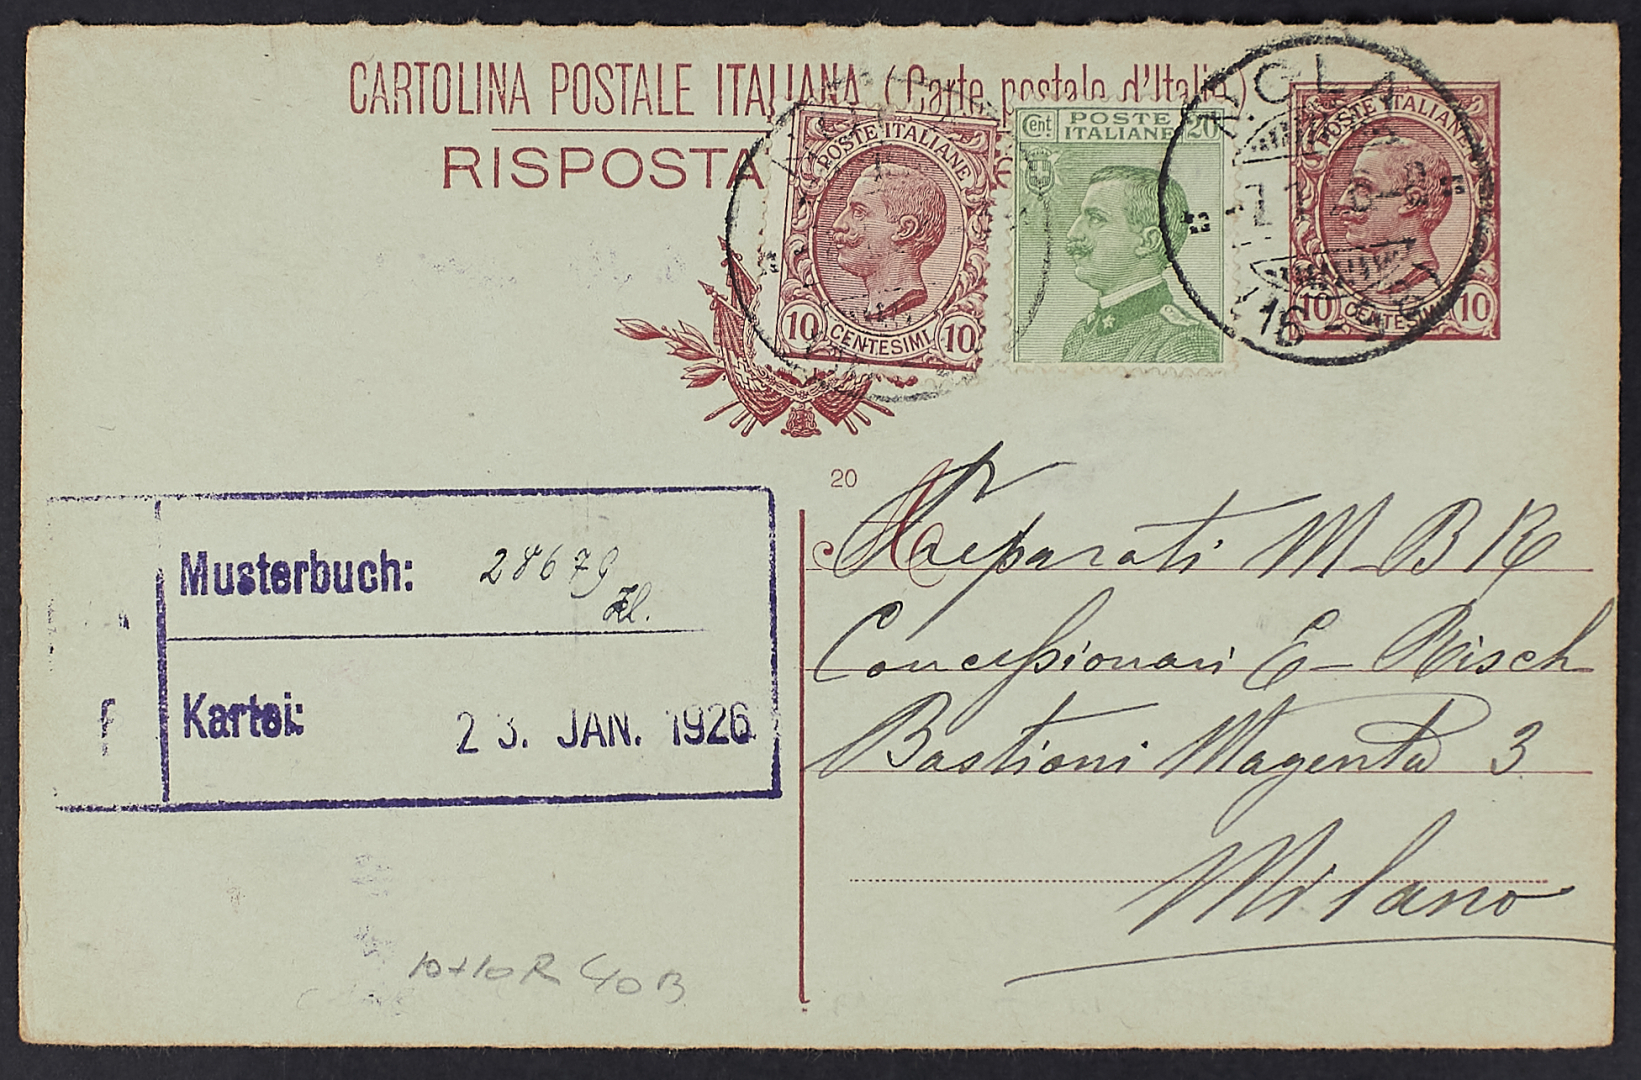 CARTOLINA POSTALE ITALIANA (Carte postale d'Italie)
RISPOSTA
POSTE ITALIANE
10 CENTESIMI 10
Cent POSTE ITALIANE 20
POSTE ITALIANE
10 CENTESIMI 10
20
Preparati M-BK
Concessionari E- Risch
Bastioni Magenta 3
Milano
Musterbuch: 28679
Kartei: 23. JAN. 1926
10+10R 40B